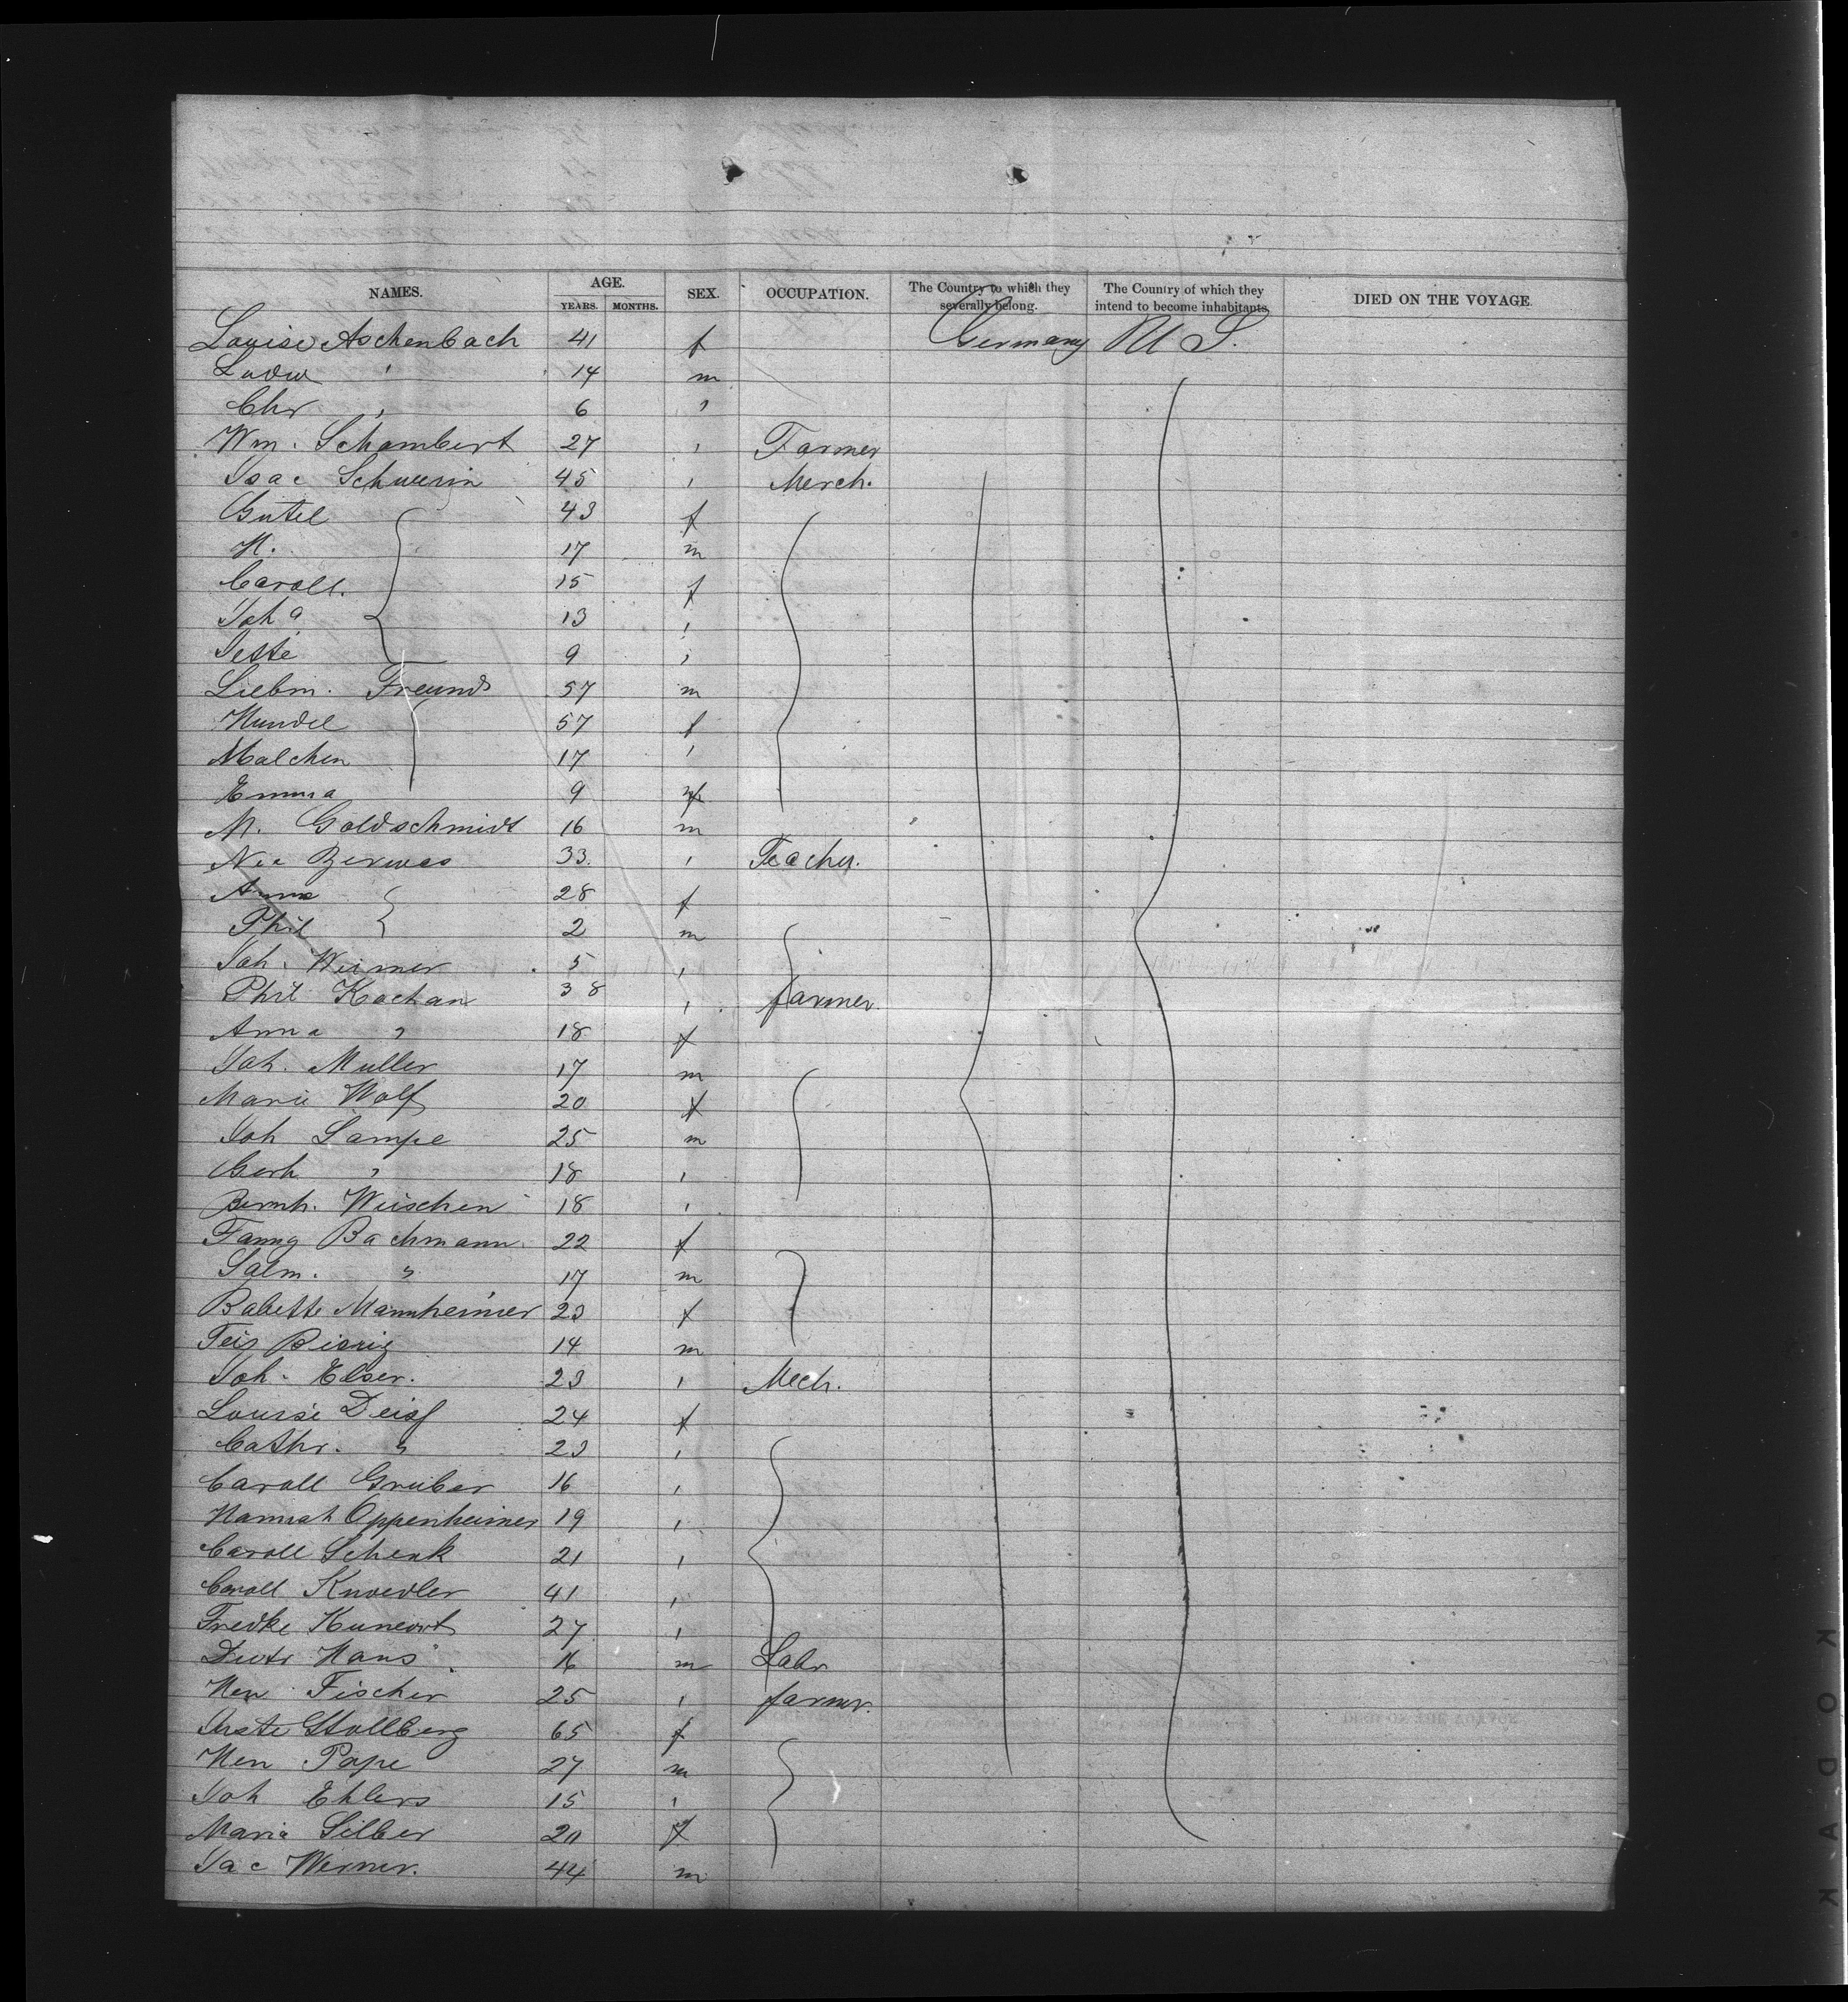 NAMES. AGE. YEARS. MONTHS. SEX. OCCUPATION. The Country to which they severally belong. The Country of which they intend to become inhabitants. DIED ON THE VOYAGE.
Louise Aschenbach 41 f Germany U S.
Ludw " 14 m
Chr " 6 "
Wm. Schambert 27 " Farmer
Isac Schwerin 45 " Merch.
Gutel 43 f
H. 17 m
Caroll. 15 f
Joha 13 "
Jette 9 "
Liebm. Freund 57 m
Hundel 57 f
Malchen 17 "
Emma 9 f
M. Goldschmidt 16 m
Nic 33. " Teacher.
Anna 28 f
Phil 2 m
Joh. Weimer 5 "
Phil Kochan 38 " farmer.
Anna " 18 f
Joh. Muller 17 m
Marie Wolf 20 f
Joh Lampe 25 m
Gerh " 18 "
Bernh. Weischen 18 "
Fanny Bachmann. 22 f
Salm. " 17 m
Babette Mannheimer 23 f
14 m
Joh. Elser. 23 " Mech.
Louise Deisf 24 f
Cathr. " 23 "
Caroll Gruber 16 "
Hannah Oppenheimer 19 "
Caroll Schenk 21 "
Caroll Knoedler 41 "
Fredke 27 "
Dietr Hans 16 m Labr
Hen Fischer 25 " farmer.
Stollberg 65 f
Hen Pape 27 m
Joh Ehlers 15 "
Maria Silber 20 f
Jac Werner. 44 m
KODAK